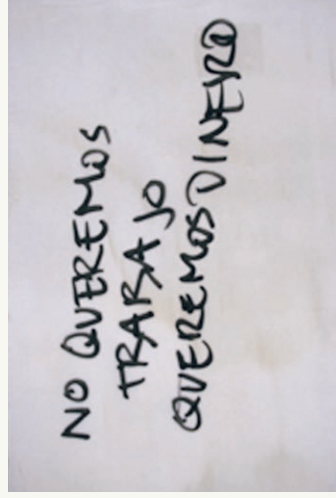 NO QUEREMOS
TRABAJO
QUEREMOS DINERO